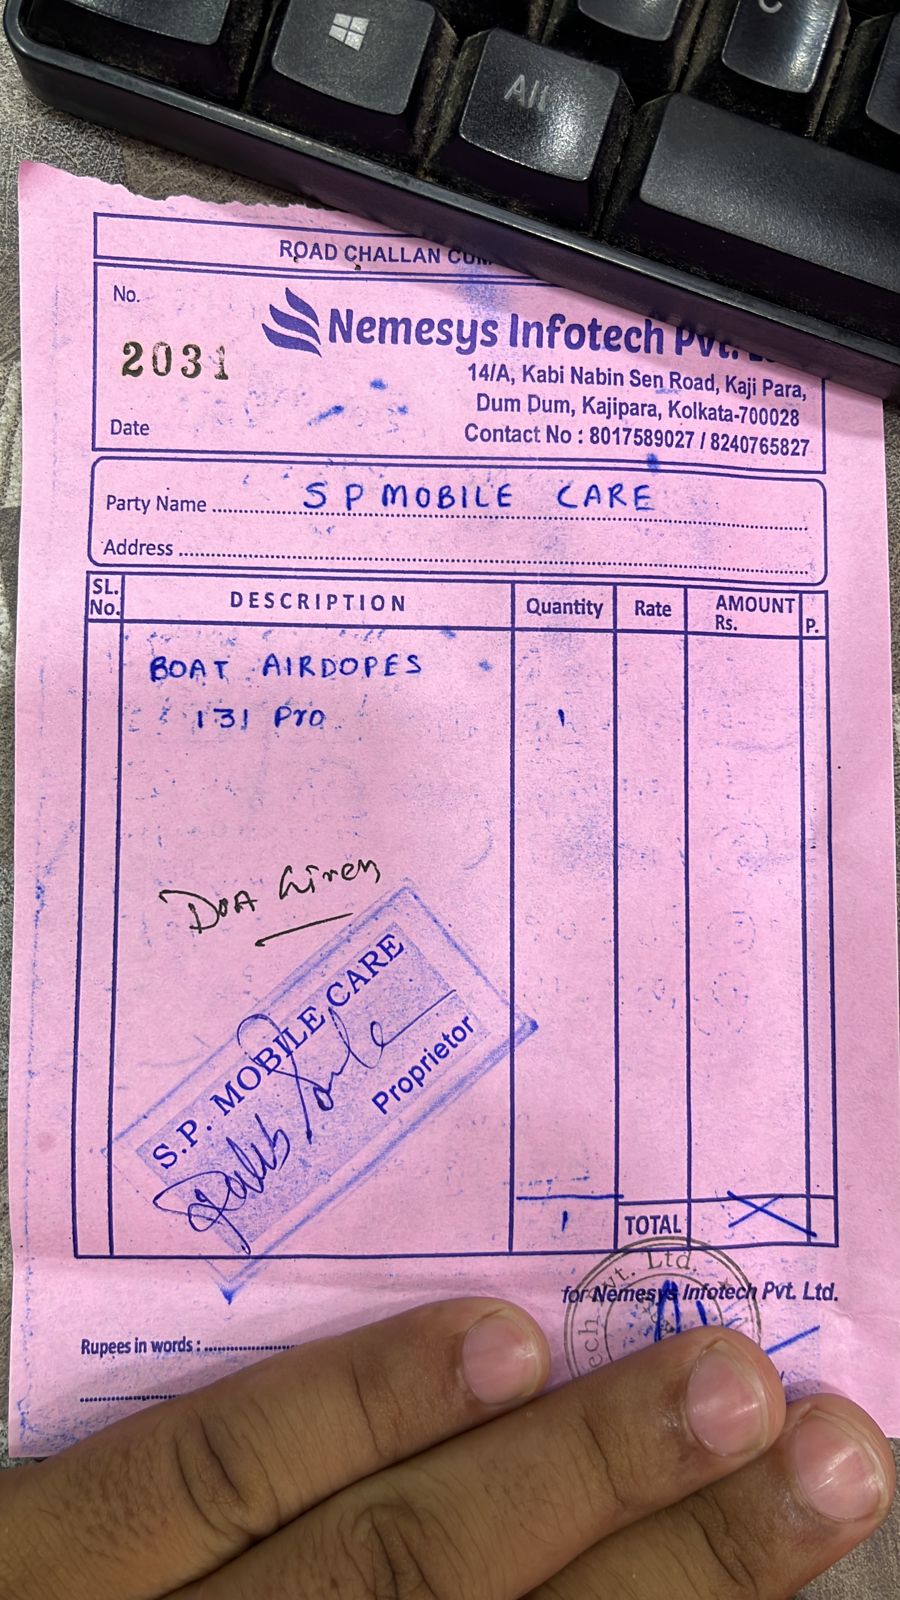 Alt
C
ROAD CHALLAN
No.
2031
Nemesys Infotech Pvt.
14/A, Kabi Nabin Sen Road, Kaji Para,
Dum Dum, Kajipara, Kolkata-700028
Contact No : 8017589027 / 8240765827
Date
Party Name S P MOBILE CARE
Address
SL. No. DESCRIPTION Quantity Rate AMOUNT Rs. P.
BOAT AIRDOPES
131 Pro 1
DOA Given
S.P. MOBILE CARE
Proprietor
1 TOTAL
for Nemesys Infotech Pvt. Ltd.
Pvt. Ltd.
Rupees in words :